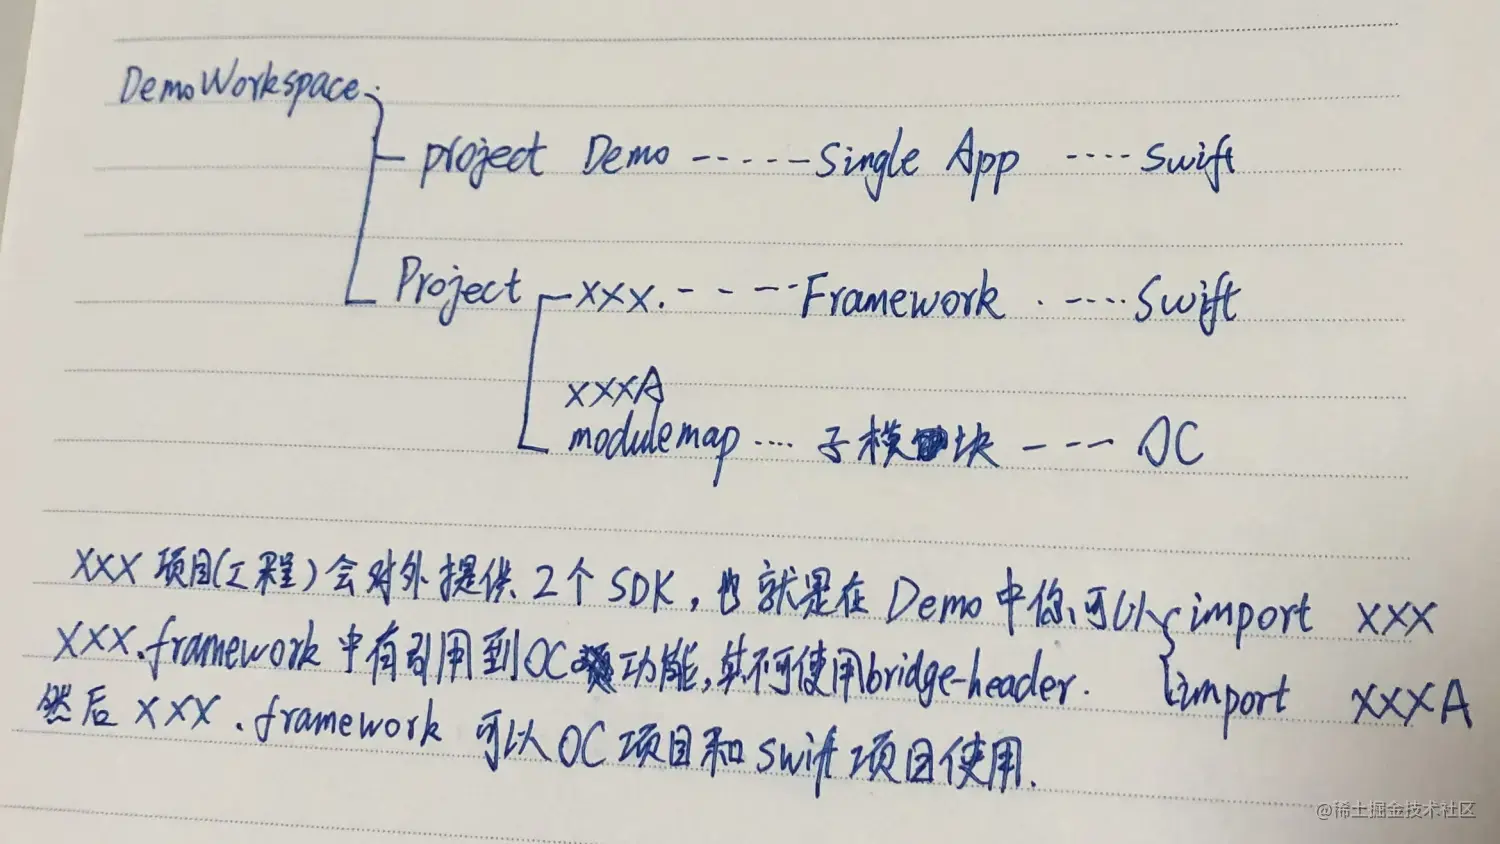 DemoWorkspace.
project Demo ------ Single App ---- Swift
Project xxx. - - --- Framework . ---- Swift
xxxA
modulemap .... 子模块 --- OC
xxx 项目(工程) 会对外提供 2个 SDK, 也就是在 Demo 中你可以 { import xxx
xxx.framework 中有引用到OC 功能, 不可使用bridge-header. import xxxA
然后 xxx .framework 可以 OC 项目和 swift 项目使用.
@稀土掘金技术社区